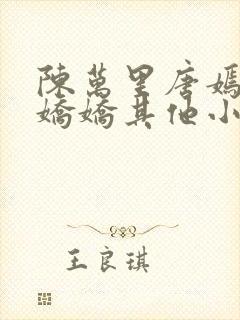 陳萬里唐嫣
嬌嬌其他小
王良琪